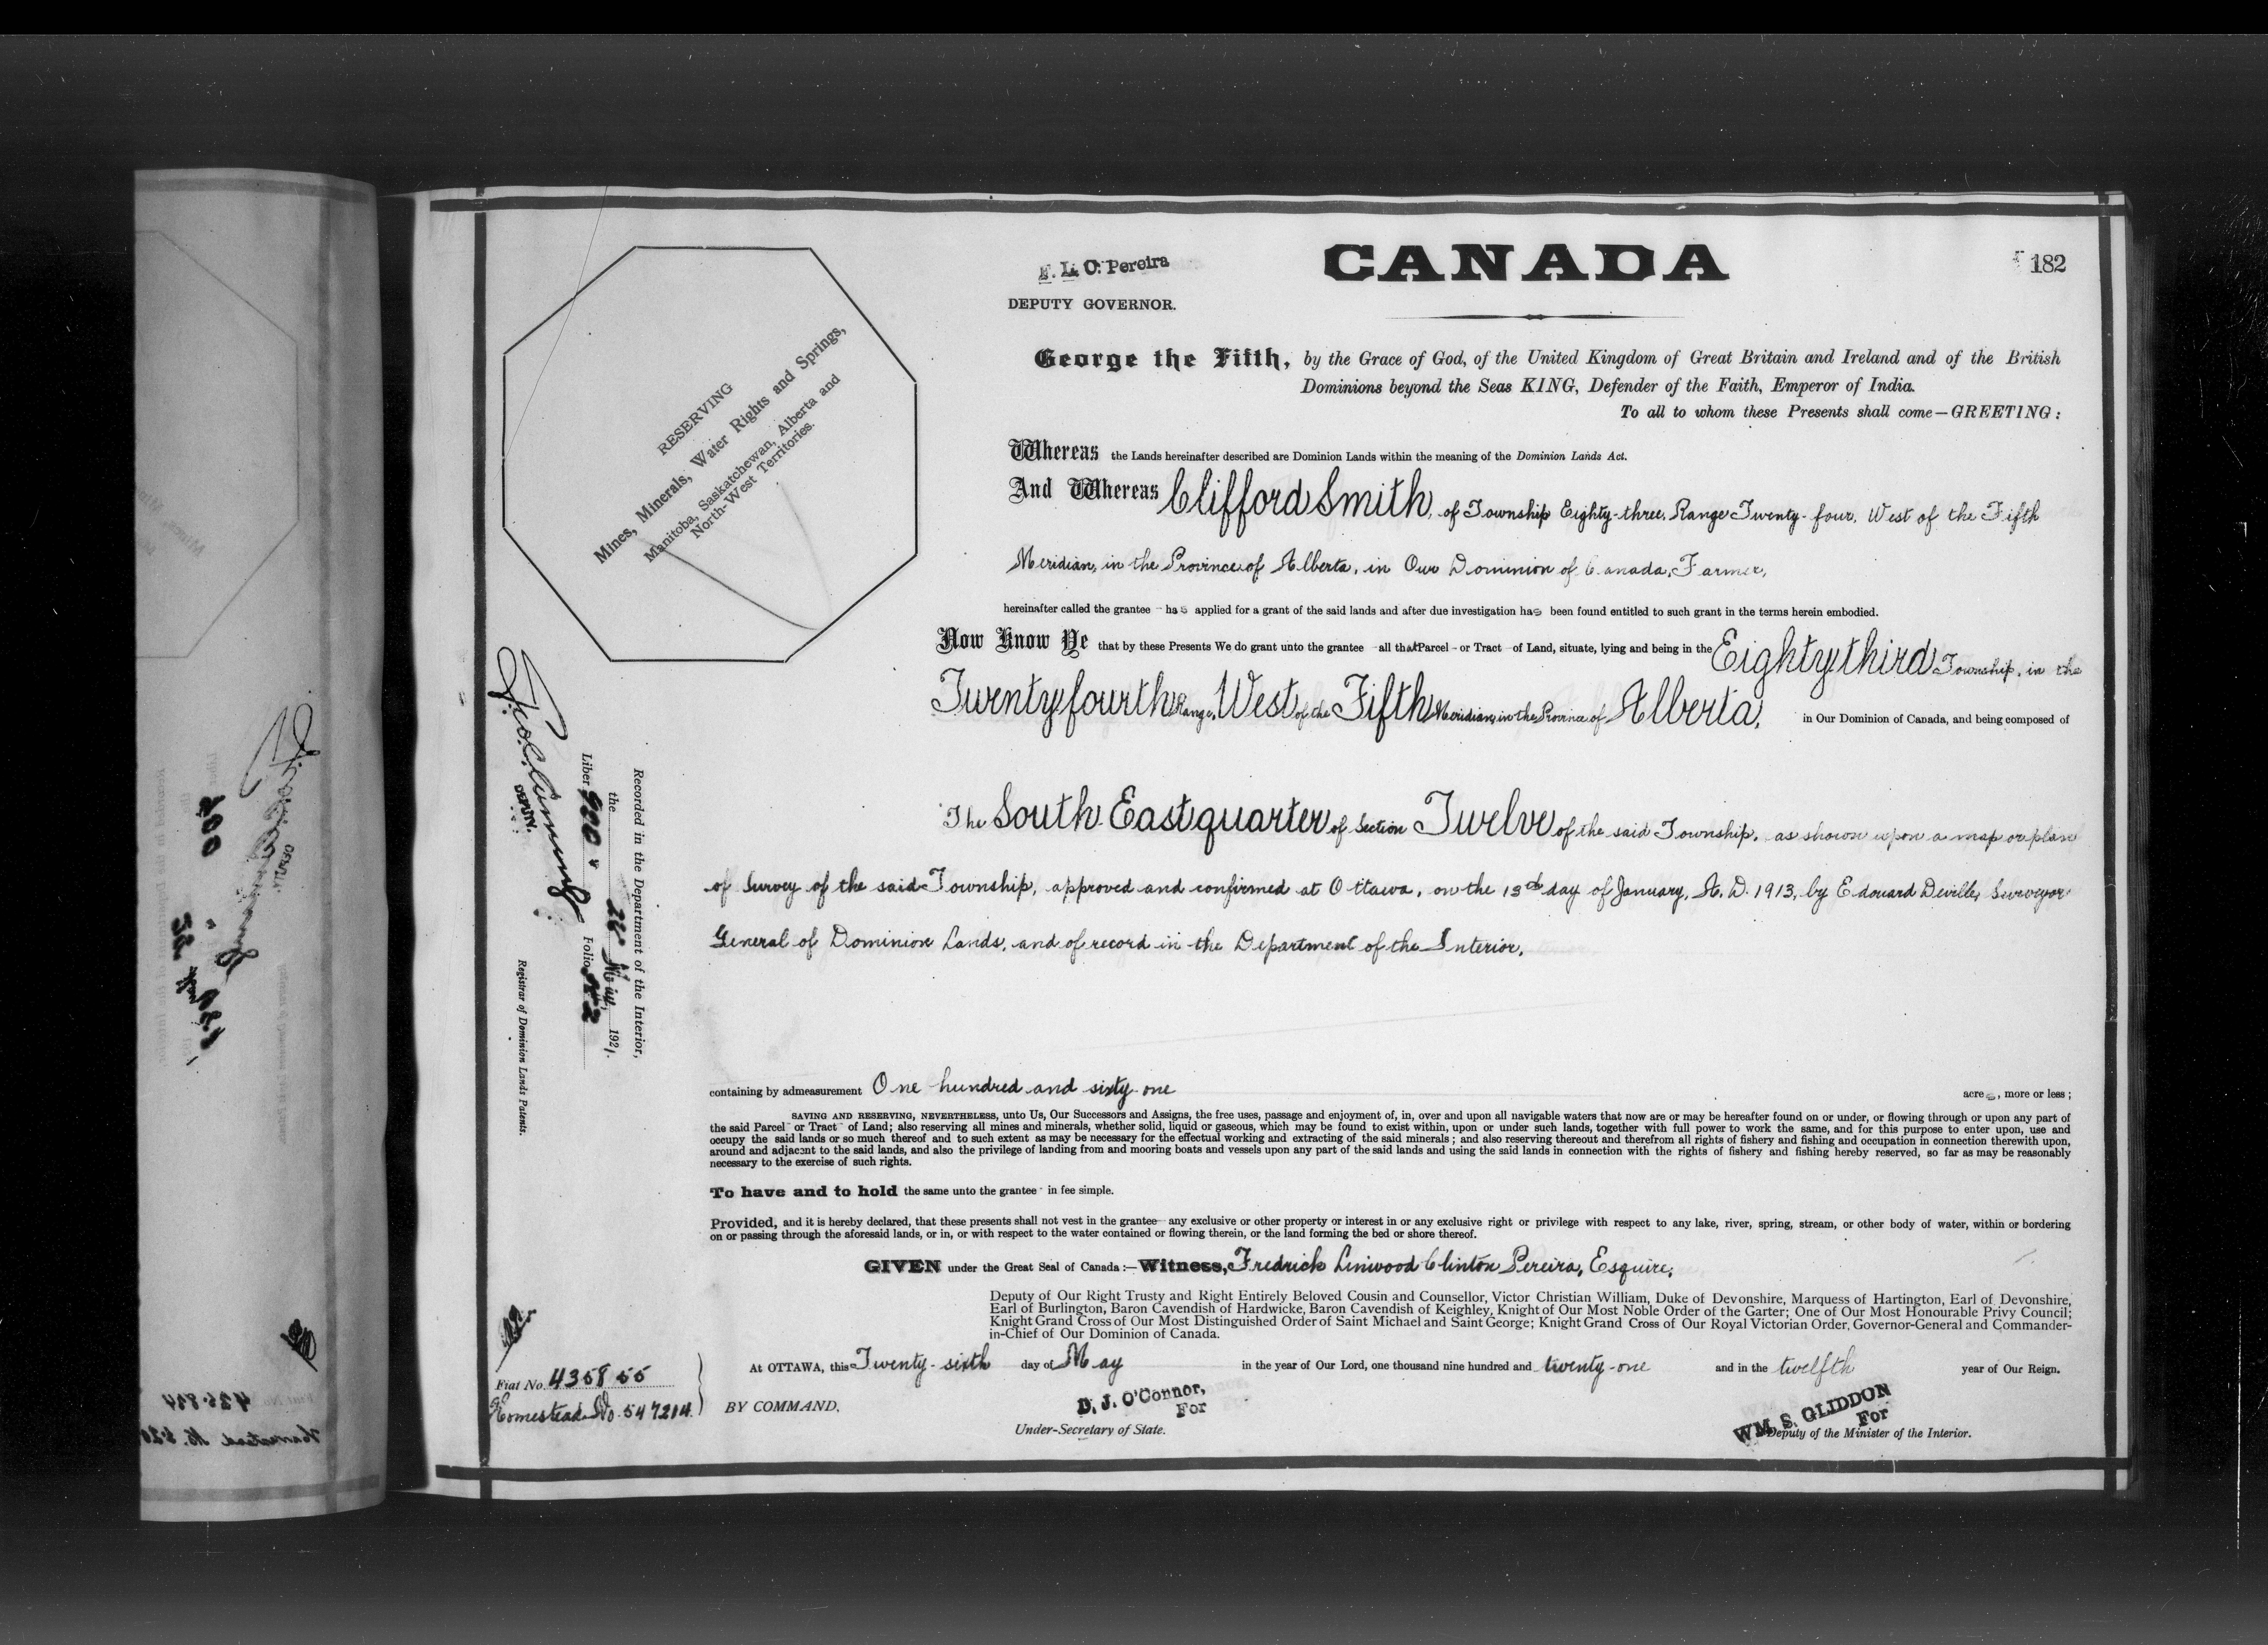 CANADA
182
F. L. C. Pereira
DEPUTY GOVERNOR.
George the Fifth, by the Grace of God, of the United Kingdom of Great Britain and Ireland and of the British
Dominions beyond the Seas KING, Defender of the Faith, Emperor of India.
To all to whom these Presents shall come—GREETING:
RESERVING
Mines, Minerals, Water Rights and Springs,
Manitoba, Saskatchewan, Alberta and
North-West Territories.
Whereas the Lands hereinafter described are Dominion Lands within the meaning of the Dominion Lands Act.
And Whereas Clifford Smith, of Township Eighty-three, Range Twenty-four, West of the Fifth
Meridian, in the Province of Alberta, in Our Dominion of Canada, Farmer,
hereinafter called the grantee - has applied for a grant of the said lands and after due investigation has been found entitled to such grant in the terms herein embodied.
Now Know Ye that by these Presents We do grant unto the grantee - all that Parcel - or Tract - of Land, situate, lying and being in the Eighty third Township, in the
Twenty fourth Range, West of the Fifth Meridian, in the Province of Alberta, in Our Dominion of Canada, and being composed of
The South East quarter of Section Twelve of the said Township, as shown upon a map or plan
of Survey of the said Township, approved and confirmed at Ottawa, on the 13th day of January, A.D. 1913, by Edouard Deville, Surveyor
General of Dominion Lands, and of record in the Department of the Interior.
Recorded in the Department of the Interior,
the 28 May, 1921.
Liber 900 Folio
DEPUTY.
Registrar of Dominion Lands Patents.
containing by admeasurement One hundred and sixty one acres, more or less;
SAVING AND RESERVING, NEVERTHELESS, unto Us, Our Successors and Assigns, the free uses, passage and enjoyment of, in, over and upon all navigable waters that now are or may be hereafter found on or under, or flowing through or upon any part of
the said Parcel - or Tract - of Land; also reserving all mines and minerals, whether solid, liquid or gaseous, which may be found to exist within, upon or under such lands, together with full power to work the same, and for this purpose to enter upon, use and
occupy the said lands or so much thereof and to such extent as may be necessary for the effectual working and extracting of the said minerals; and also reserving thereout and therefrom all rights of fishery and fishing and occupation in connection therewith upon,
around and adjacent to the said lands, and also the privilege of landing from and mooring boats and vessels upon any part of the said lands and using the said lands in connection with the rights of fishery and fishing hereby reserved, so far as may be reasonably
necessary to the exercise of such rights.
To have and to hold the same unto the grantee - in fee simple.
Provided, and it is hereby declared, that these presents shall not vest in the grantee - any exclusive or other property or interest in or any exclusive right or privilege with respect to any lake, river, spring, stream, or other body of water, within or bordering
on or passing through the aforesaid lands, or in, or with respect to the water contained or flowing therein, or the land forming the bed or shore thereof.
GIVEN under the Great Seal of Canada:—Witness, Fredrick Linwood Clinton Pereira, Esquire,
Deputy of Our Right Trusty and Right Entirely Beloved Cousin and Counsellor, Victor Christian William, Duke of Devonshire, Marquess of Hartington, Earl of Devonshire,
Earl of Burlington, Baron Cavendish of Hardwicke, Baron Cavendish of Keighley, Knight of Our Most Noble Order of the Garter; One of Our Most Honourable Privy Council;
Knight Grand Cross of Our Most Distinguished Order of Saint Michael and Saint George; Knight Grand Cross of Our Royal Victorian Order, Governor-General and Commander-
in-Chief of Our Dominion of Canada.
At OTTAWA, this Twenty-sixth day of May in the year of Our Lord, one thousand nine hundred and twenty-one and in the twelfth year of Our Reign.
Fiat No. 435855
Homestead No. 547214.
BY COMMAND,
D. J. O'Connor,
For
Under-Secretary of State.
WM. S. GLIDDON
For
Deputy of the Minister of the Interior.